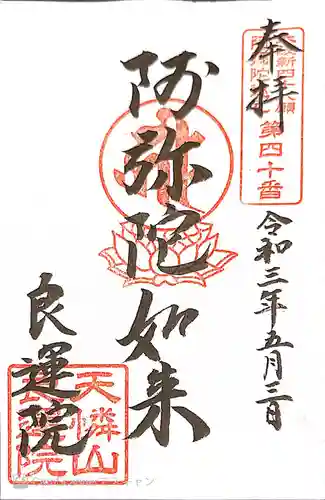 奉拝
第四十番
令和三年五月三日
阿弥陀如来
良運院
天嶙山